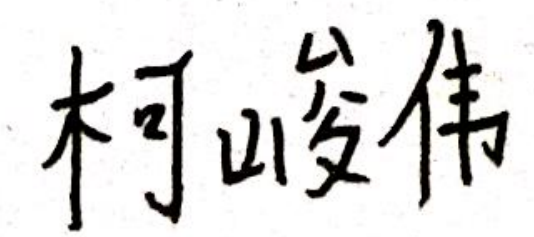 柯峻伟